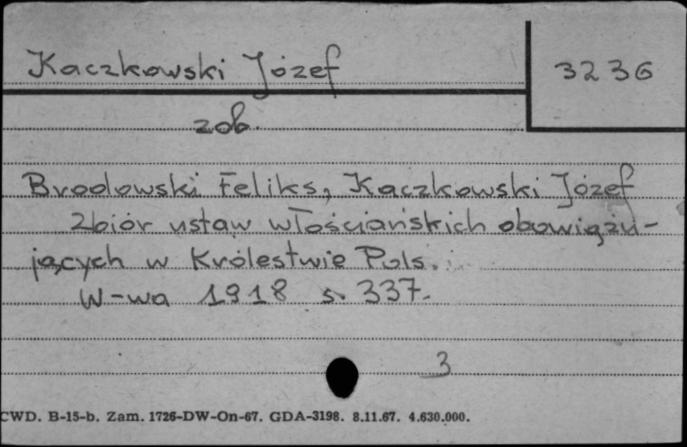 Kaczkowski Józef
3236
zob.
Brodowski Feliks, Kaczkowski Józef
Zbiór ustaw włościańskich obowiązu-
jących w Królestwie Pols.
W-wa 1918 s. 337.
3
CWD. B-15-b. Zam. 1726-DW-On-67. GDA-3198. 8.11.67. 4.630.000.